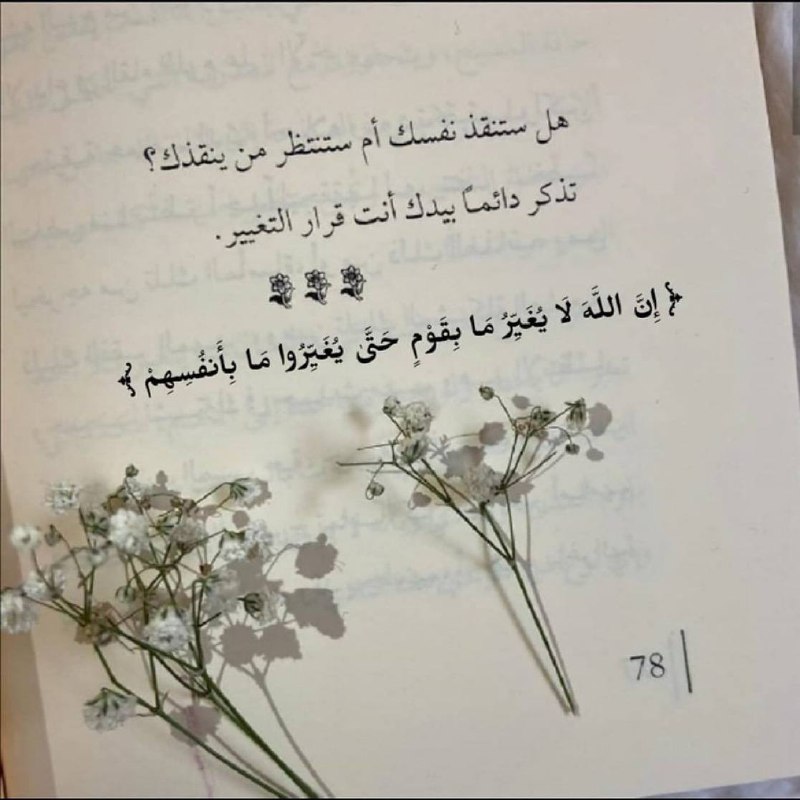 هل ستنقذ نفسك أم ستنتظر من ينقذك؟
تذكر دائماً بيدك أنت قرار التغيير.
﴿ إِنَّ اللَّهَ لَا يُغَيِّرُ مَا بِقَوْمٍ حَتَّىٰ يُغَيِّرُوا مَا بِأَنفُسِهِمْ ﴾
78